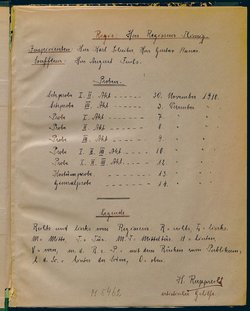 Regie: Herr Regisseur
Inspizienten: Herr Karl Herr Gustav
Souffleur: Herr August
Proben
Leseprobe I. II. Akt 30. November 1910.
Leseprobe III. Akt 3. Dezember "
Probe I. Akt 7. " "
Probe II. Akt 8. " "
Probe III. Akt 9. " "
Probe I. II. III. Akt 10. " "
Probe I. II. III. Akt 12. " "
Kostümprobe 13. " "
Generalprobe 14. " "
Legende
Rechts und links vom Regisseur. R = rechts, L = links.
M = Mitte. T = Türe. M.T. = Mitteltüre. H = hinten
V = vorn, m. d. R. z. P. = mit dem Rücken zum Publikum,
O. oben.
H. Rupprecht
M 5462